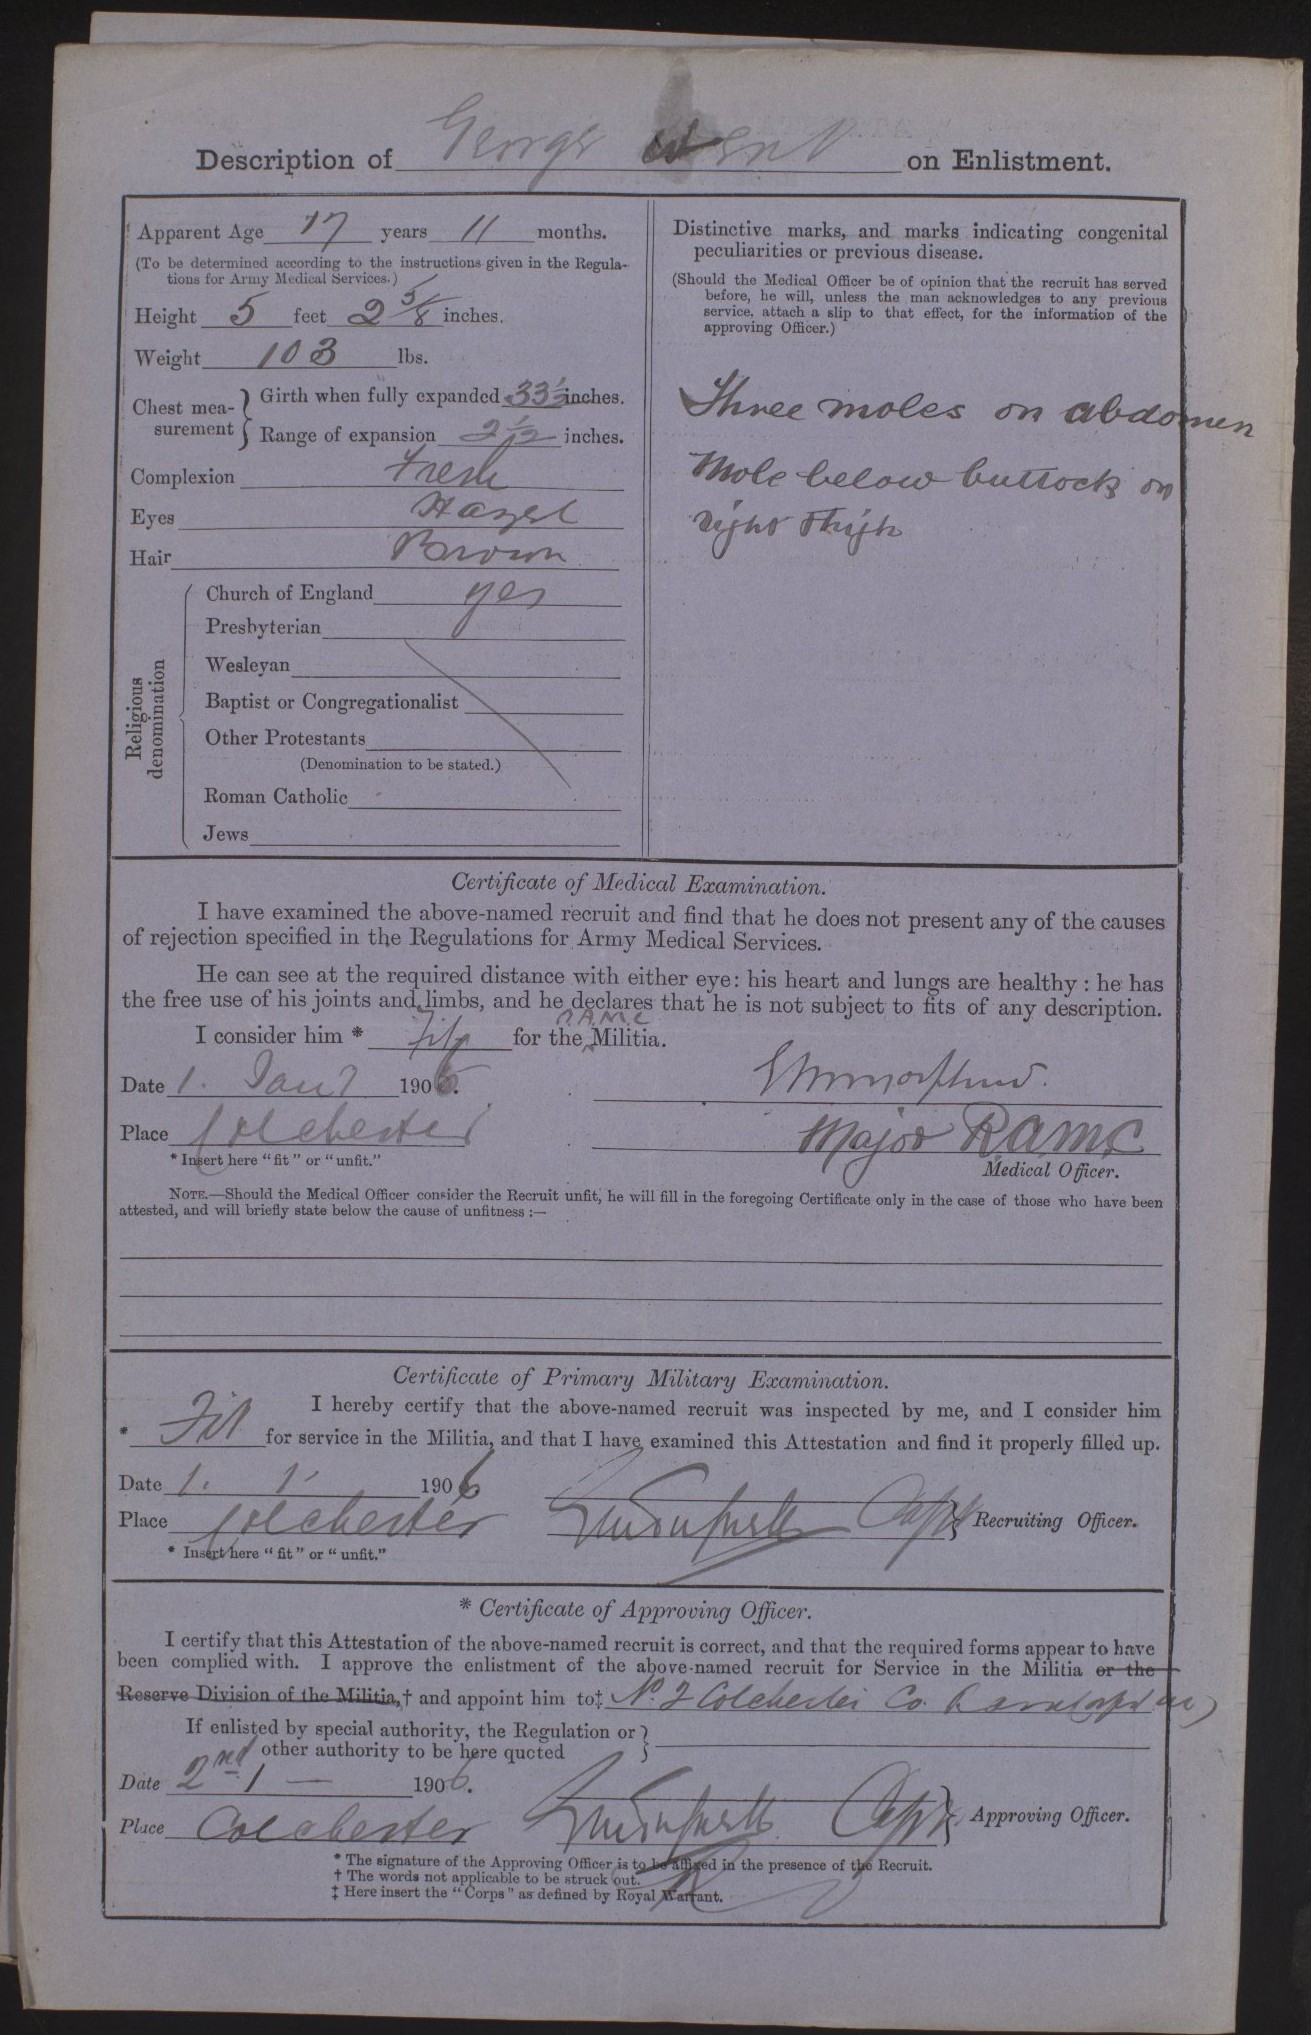 Description of George Went on Enlistment.
Apparent Age 17 years 11 months.
(To be determined according to the instructions given in the Regula-
tions for Army Medical Services.)
Height 5 feet 2 5/8 inches.
Weight 103 lbs.
Chest mea-
surement
Girth when fully expanded 33 1/2 inches.
Range of expansion 2 1/2 inches.
Complexion Fresh
Eyes Hazel
Hair Brown
Religious
denomination
Church of England yes
Presbyterian
Wesleyan
Baptist or Congregationalist
Other Protestants
(Denomination to be stated.)
Roman Catholic
Jews
Distinctive marks, and marks indicating congenital
peculiarities or previous disease.
(Should the Medical Officer be of opinion that the recruit has served
before, he will, unless the man acknowledges to any previous
service, attach a slip to that effect, for the information of the
approving Officer.)
Three moles on abdomen
Mole below buttock on
right thigh
Certificate of Medical Examination.
I have examined the above-named recruit and find that he does not present any of the causes
of rejection specified in the Regulations for Army Medical Services.
He can see at the required distance with either eye: his heart and lungs are healthy: he has
the free use of his joints and limbs, and he declares that he is not subject to fits of any description.
R.A.M.C
I consider him * Fit for the Militia.
Date 1. Jany 1906.
Place Colchester
Major RAMC
* Insert here "fit" or "unfit."
Medical Officer.
NOTE.—Should the Medical Officer consider the Recruit unfit, he will fill in the foregoing Certificate only in the case of those who have been
attested, and will briefly state below the cause of unfitness :—
Certificate of Primary Military Examination.
I hereby certify that the above-named recruit was inspected by me, and I consider him
* Fit for service in the Militia, and that I have examined this Attestation and find it properly filled up.
Date 1. 1. 1906
Place Colchester Capt Recruiting Officer.
* Insert here "fit" or "unfit."
* Certificate of Approving Officer.
I certify that this Attestation of the above-named recruit is correct, and that the required forms appear to have
been complied with. I approve the enlistment of the above-named recruit for Service in the Militia or the
Reserve Division of the Militia,† and appoint him to‡ Colchester Co.
If enlisted by special authority, the Regulation or
other authority to be here quoted
Date 2nd 1 — 1906.
Place Colchester Capt Approving Officer.
* The signature of the Approving Officer is to be affixed in the presence of the Recruit.
† The words not applicable to be struck out.
‡ Here insert the "Corps" as defined by Royal Warrant.